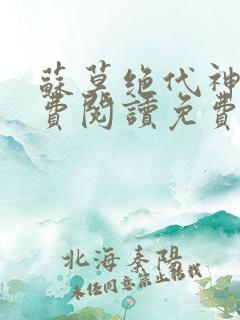 蘇莫绝代神
費閱讀免費
北海秦陽
未经同意禁止轉載